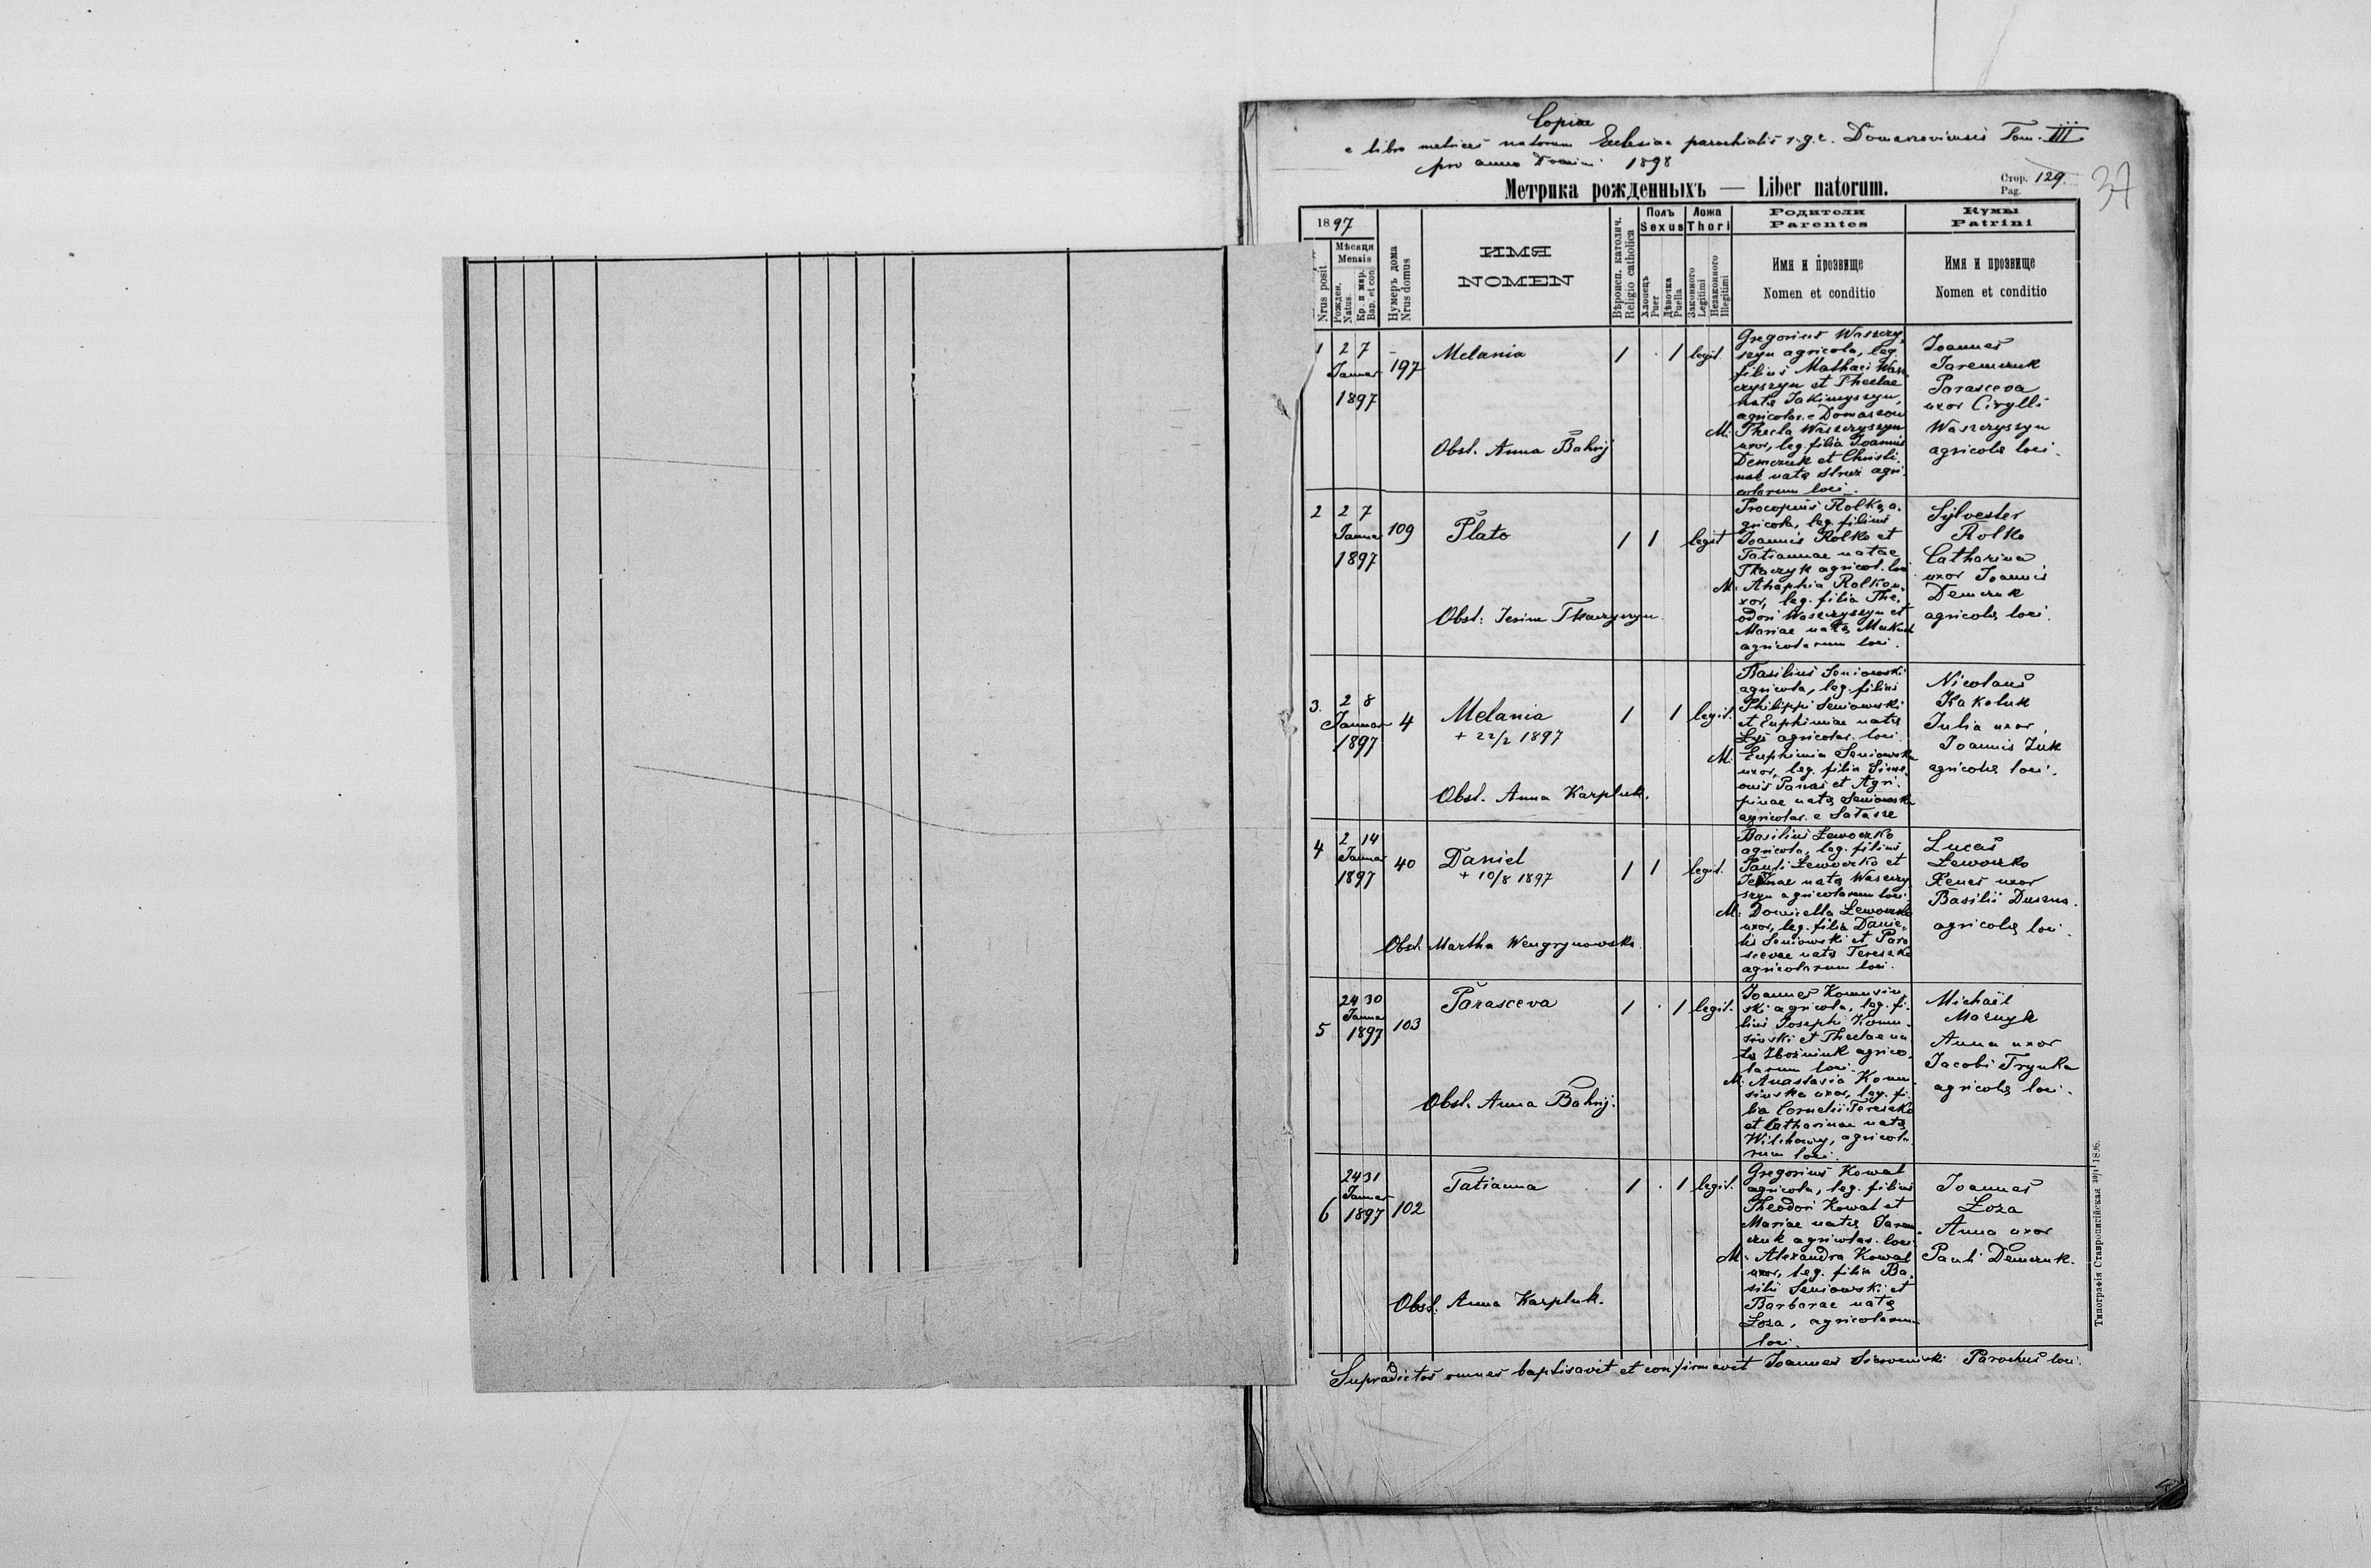 Copiae
e libro metrices natorum Eclesiae parochialis r. g. c. Domaszoviensis Tom. III
pro anno Domini 1898
37
Метрика рожденныхъ — Liber natorum.
Стор. 129.
Pag.
1897
Nrus posit
Мѣсяця
Mensis
Рожден.
Natus.
Кр. и мѵр.
Bap. et con
Нумеръ дома
Nrus domus
ИМЯ
NOMEN
Вѣроисп. католич.
Religio catholica
Полъ
Sexus
Хлопецъ
Puer
Дѣвочка
Puella
Ложа
Thori
Законного
Legitimi
Незаконного
Illegitimi
Родители
Parentes
Имя и прозвище
Nomen et conditio
Кумы
Patrini
Имя и прозвище
Nomen et conditio
1
2 7
Januar
1897
197
Melania
Obst. Anna Bahnij
1 1 legit.
Gregorius Waszczy
szyn agricola, leg.
filius Mathaei Wasz
czyszyn et Theclae
natę Jakimyszyn,
agricolar. e Domaszow
M: Thecla Waszczyszyn
uxor, leg. filia Joannis
Demczuk et Christi
nae natę agri
colarum loci.
Joannes
Jaremczuk
Parasceva
uxor Cirylli
Waszczyszyn
agricolę loci.
2
2 7
Januar
1897
109
Plato
Obst: Tkaczyszyn
1 1 legit
Procopius Rolko, a
gricola, leg. filius
Joannis Rolko et
Tatiannae natae
Tkaczyk agricol. loci
M: Ahaphia Rolko u
xor, leg. filia The
odori Waszczyszyn et
Mariae natę
agricolarum loci.
Sylvester
Rolko
Catharina
uxor Joannis
Demczuk
agricolę loci.
3.
2 8
Januar
1897
4
Melania
+ 22/2 1897
Obst. Anna Karpluk.
1 1 legit.
Basilius Seniowski
agricola, leg. filius
Philippi Seniowski
et Euphimiae natę
Łyś agricolar. loci.
M: Euphimia Seniowska
uxor, leg. filia Sime
onis Panas et Agri
pinae natę Seniowska
agricolar. e
Nicolaus
Kakoluk
Julia uxor
Joannis Żuk
agricolę loci.
4
2 14
Januar
1897
40
Daniel
+ 10/8 1897
Obst. Martha Wengrynowska
1 1 legit.
Basilius Lewoczko
agricola, leg. filius
Pauli Lewoczko et
natę Waszczy
szyn agricolarum loci
M: Domicella Lewoczko
uxor, leg. filia Danie
lis Seniowski et Para
scevae natę Tereszko
agricolarum loci.
Lucas
Lewoczko
Xenes uxor
Basilii
agricolę loci.
5
24 30
Januar
1897
103
Parasceva
Obst. Anna Bahnij.
1 1 legit.
Joannes Komusin
ski agricola, leg. fi
lius Josephi Komu
sinski et Theclae na
tę agrico
larum loci
M: Anastasia Komu
sinska uxor, leg. fi
lia Cornelii Tereszko
et Catharinae natę
agricola
rum loci.
Michaël
Mazuyk
Anna uxor
Jacobi Trynka
agricolę loci.
6
24 31
Januar
1897
102
Tatianna
Obst. Anna Karpluk.
1 1 legit.
Gregorius Kowal
agricola, leg. filius
Theodori Kowal et
Mariae natę Jarem
czuk agricolar. loci
M: Alexandra Kowal
uxor, leg. filia Ba
silii Seniowski et
Barbarae natę
Łoza, agricolarum
loci.
Joannes
Łoza
Anna uxor
Pauli Demczuk.
Supradictos omnes baptisavit et confirmavit Joannes Parochus loci.
Типографія Ставропигійская